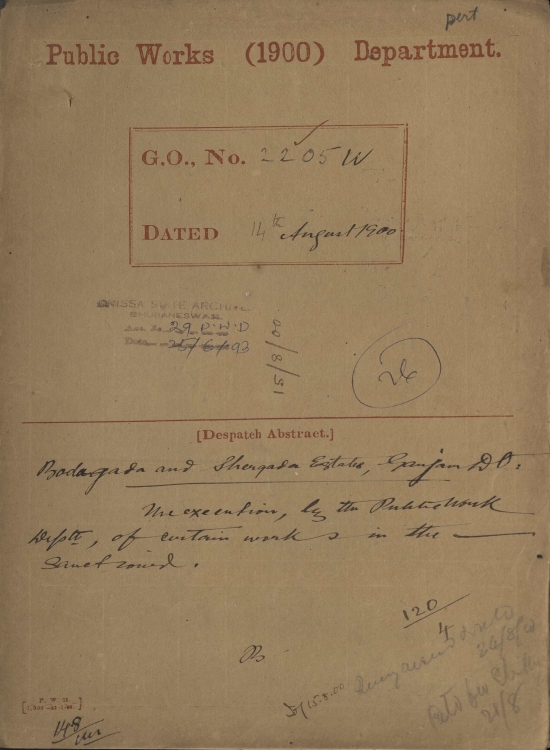 pert
Public Works (1900) Department.
G.O., No. 2205 W
DATED 14th August 1900
ORISSA STATE ARCHIVES
BHUBANESWAR
29 P.W.D
25/6/93
15/8/00
26
[Despatch Abstract.]
Bodagada and Shergada Estates, Ganjam DO:
The execution, by the Public Work
Deptt, of certain works in the
Sanctioned.
120
4
24/8/00
15.8.00
21/8
148